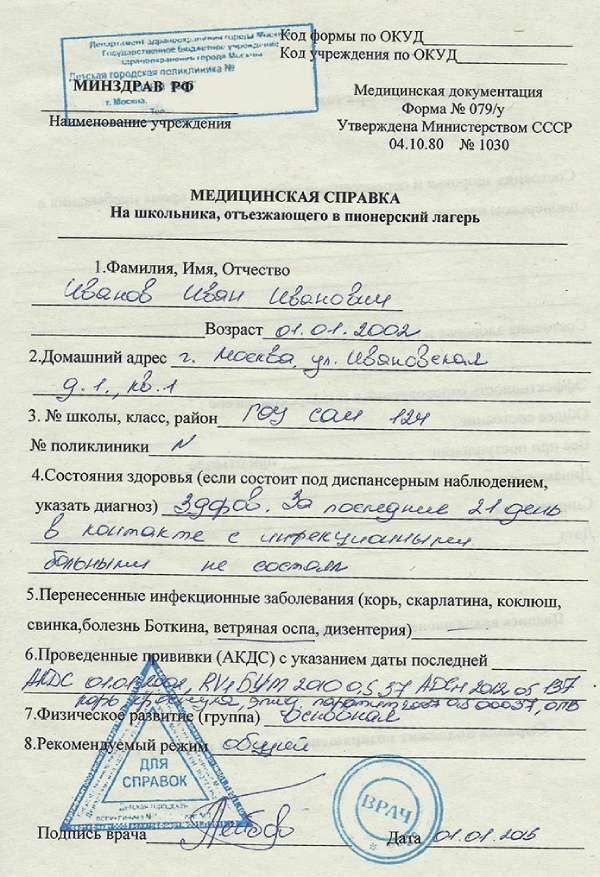 Департамент здравоохранения города Москвы
Государственное бюджетное учреждение
здравоохранения города Москвы
Детская городская поликлиника №
г. Москва,
Код формы по ОКУД
Код учреждения по ОКУД
МИНЗДРАВ РФ
Наименование учреждения
Медицинская документация
Форма № 079/у
Утверждена Министерством СССР
04.10.80 № 1030
МЕДИЦИНСКАЯ СПРАВКА
На школьника, отъезжающего в пионерский лагерь
1.Фамилия, Имя, Отчество
Иванов Иван Иванович
Возраст 01.01.2002
2.Домашний адрес г. Москва, ул. Ивановская
д.1., кв.1
3. № школы, класс, район ГОУ сош 124
№ поликлиники N
4.Состояния здоровья (если состоит под диспансерным наблюдением,
указать диагноз) Здоров. За последние 21 день
в контакте с инфекционными
больными не состоял
5.Перенесенные инфекционные заболевания (корь, скарлатина, коклюш,
свинка,болезнь Боткина, ветряная оспа, дизентерия)
6.Проведенные прививки (АКДС) с указанием даты последней
АКДС
корь
7.Физическое развитие (группа) основная
8.Рекомендуемый режим общий
ДЛЯ
СПРАВОК
ВРАЧ
Подпись врача
Дата 01.01.2015